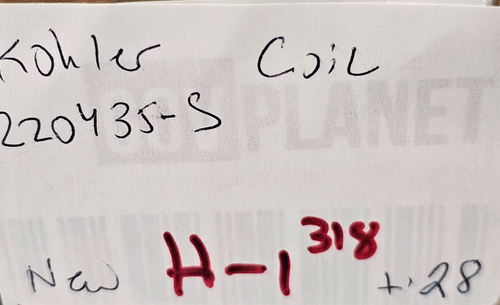 Kohler Coil
220435-S
PLANET
New H-1 318 +.28